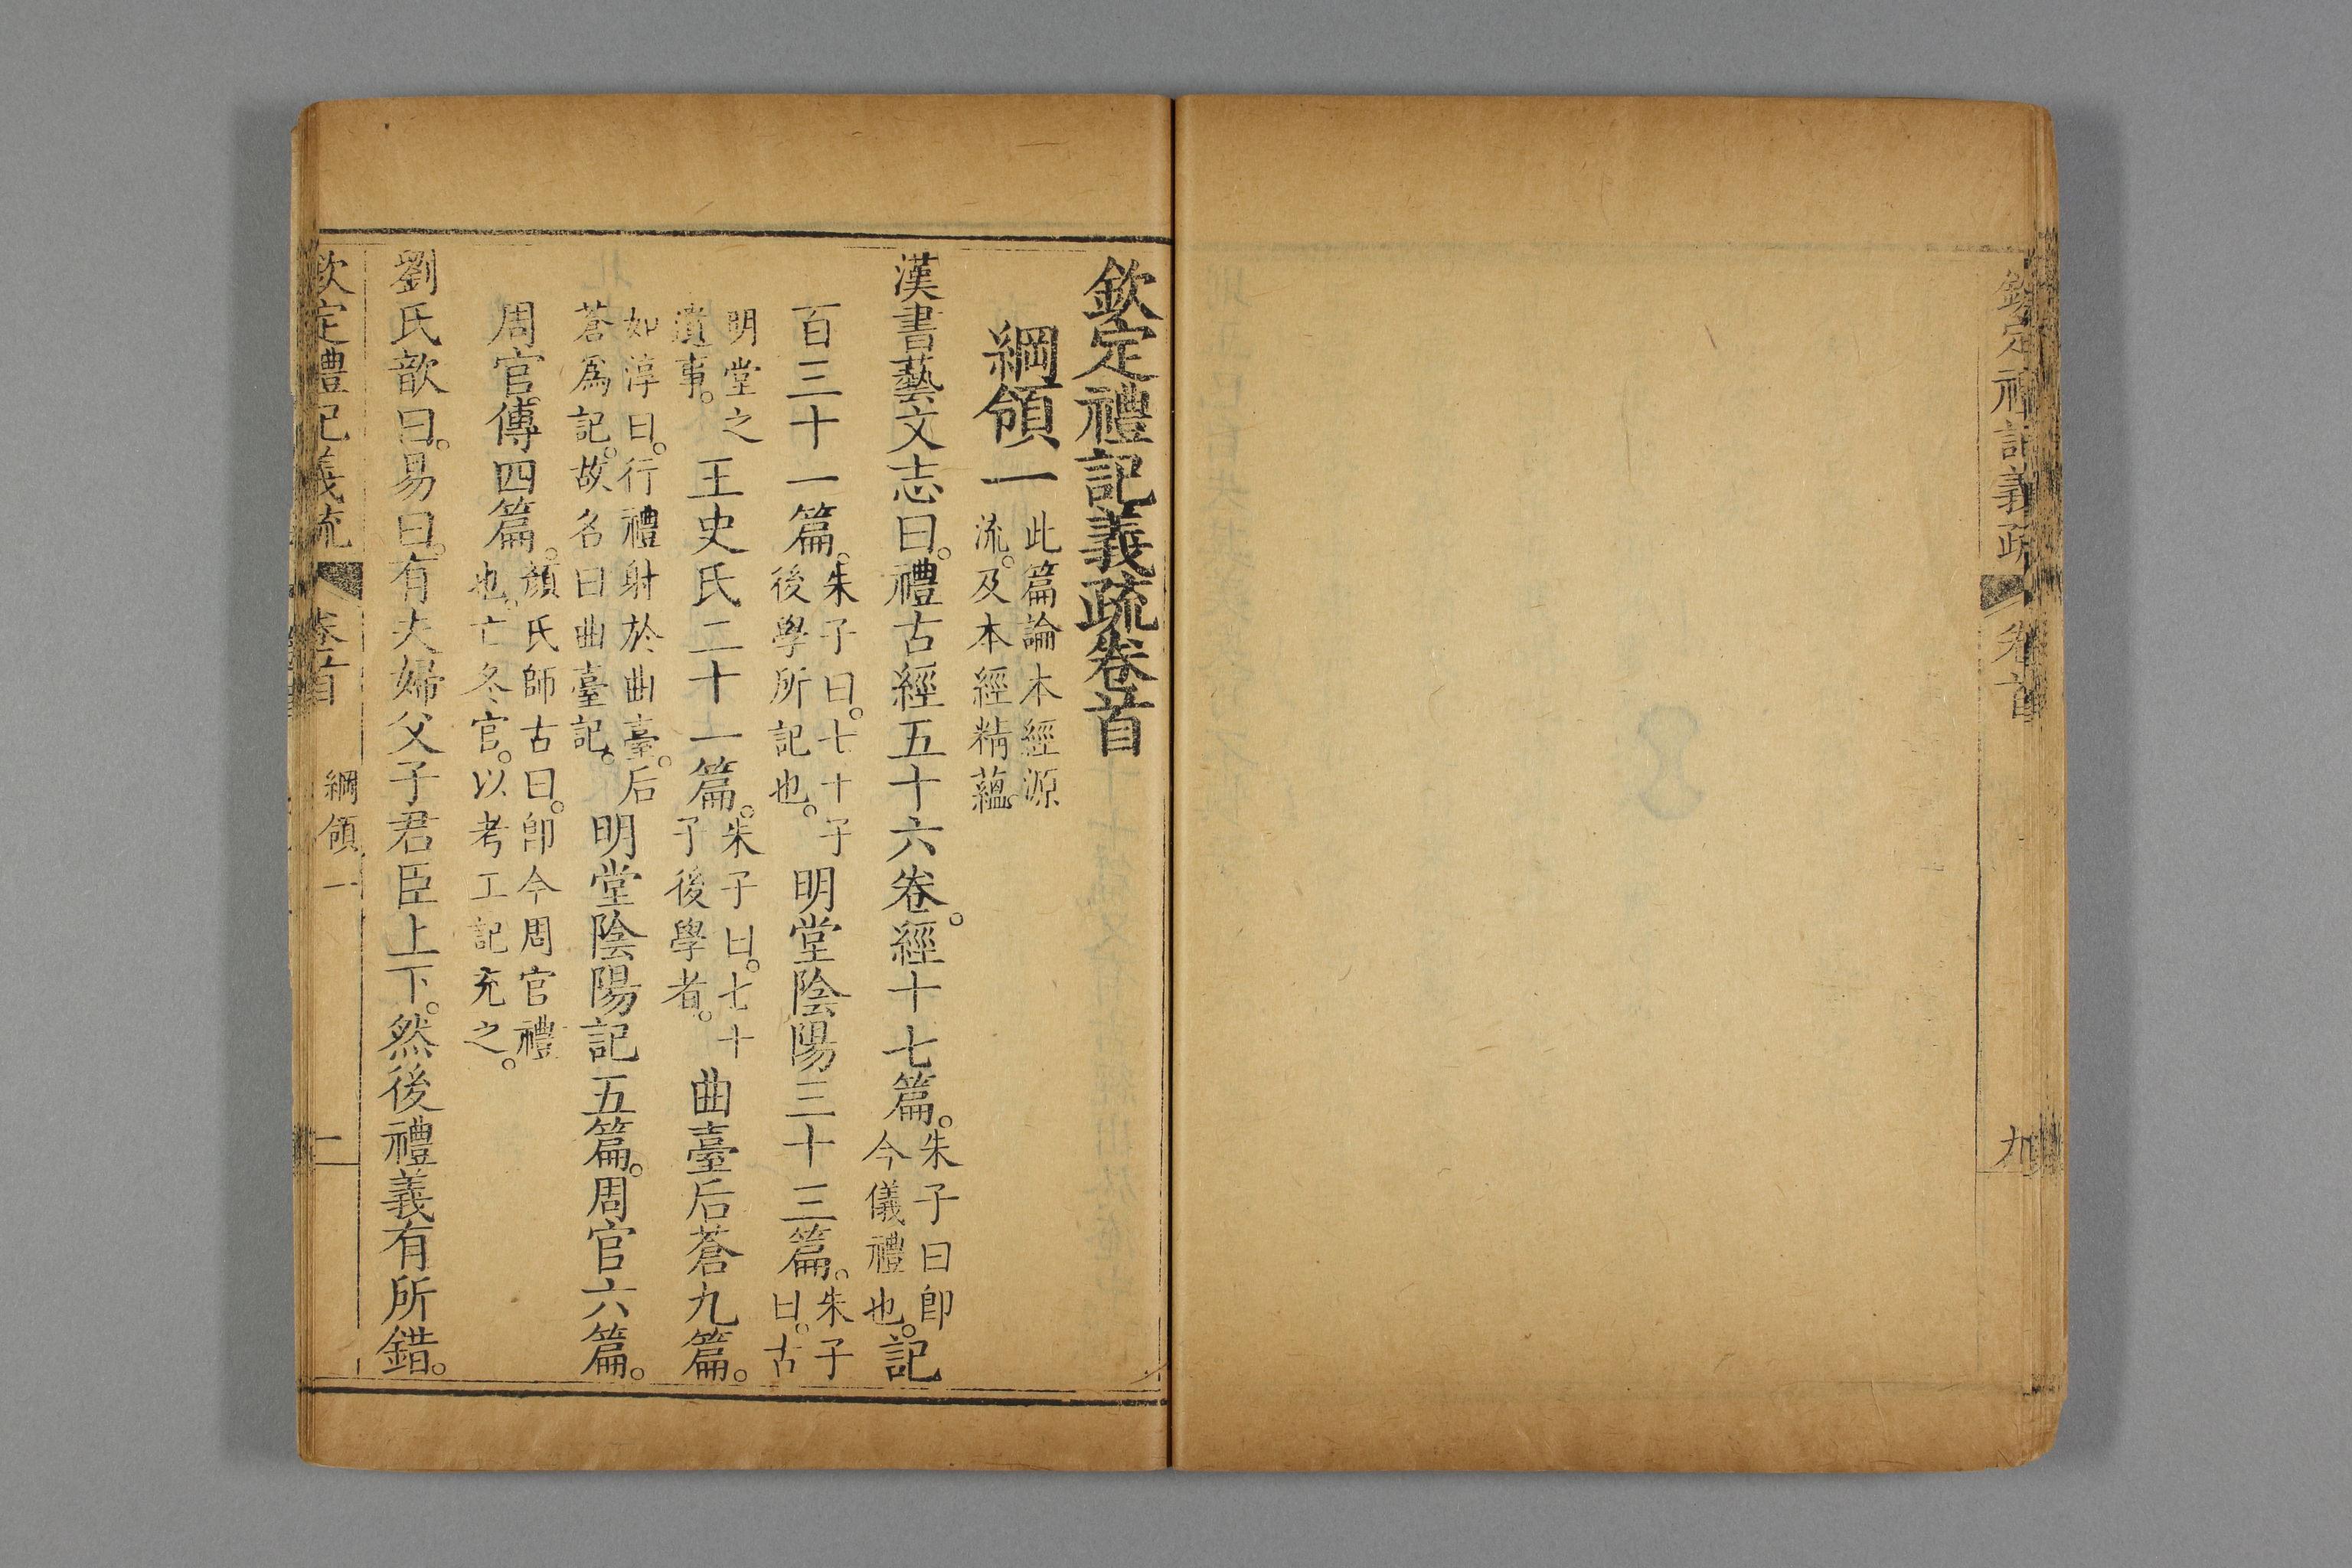 欽定禮記義疏 卷首 九
欽定禮記義疏卷首
綱領一 此篇論本經源流。及本經精蘊。
漢書藝文志曰。禮古經五十六卷。經十七篇。朱子曰卽今儀禮也。記
百三十一篇。朱子曰。七十子後學所記也。明堂陰陽三十三篇。朱子曰。古
明堂之遺事。王史氏二十一篇。朱子曰。七十子後學者。曲臺后蒼九篇。
如淳曰。行禮射於曲臺。后蒼爲記。故名曰曲臺記。明堂陰陽記五篇。周官六篇。
周官傳四篇。顏氏師古曰。卽今周官禮也。亡冬官。以考工記充之。
劉氏歆曰。易曰。有夫婦父子君臣上下。然後禮義有所錯。
欽定禮記義疏 卷首 綱領一 一